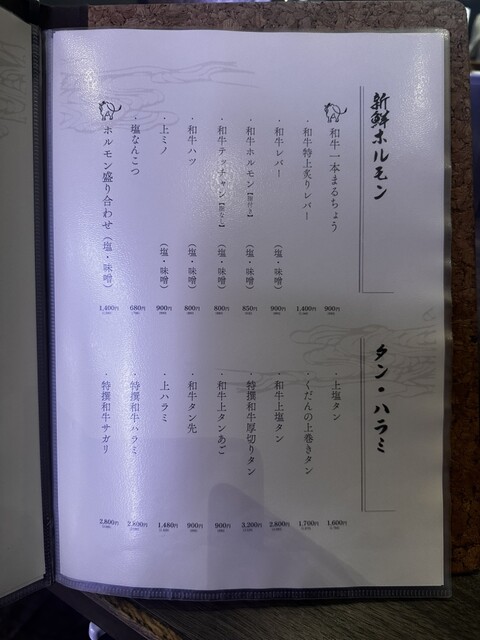 新鮮ホルモン
和牛一本まるちょう 900円
・和牛特上炙りレバー 1,400円
・和牛レバー (塩・味噌) 900円
・和牛ホルモン【脂付き】 (塩・味噌) 850円
・和牛テッチャン【脂なし】 (塩・味噌) 800円
・和牛ハツ (塩・味噌) 800円
・上ミノ (塩・味噌) 900円
・塩なんこつ 680円
ホルモン盛り合わせ (塩・味噌) 1,400円
タン・ハラミ
・上塩タン 1,600円
・くだんの上巻きタン 1,700円
・和牛上塩タン 2,800円
・特撰和牛厚切りタン 3,200円
・和牛上タンあご 900円
・和牛タン先 900円
・上ハラミ 1,480円
・特撰和牛ハラミ 2,800円
・特撰和牛サガリ 2,800円